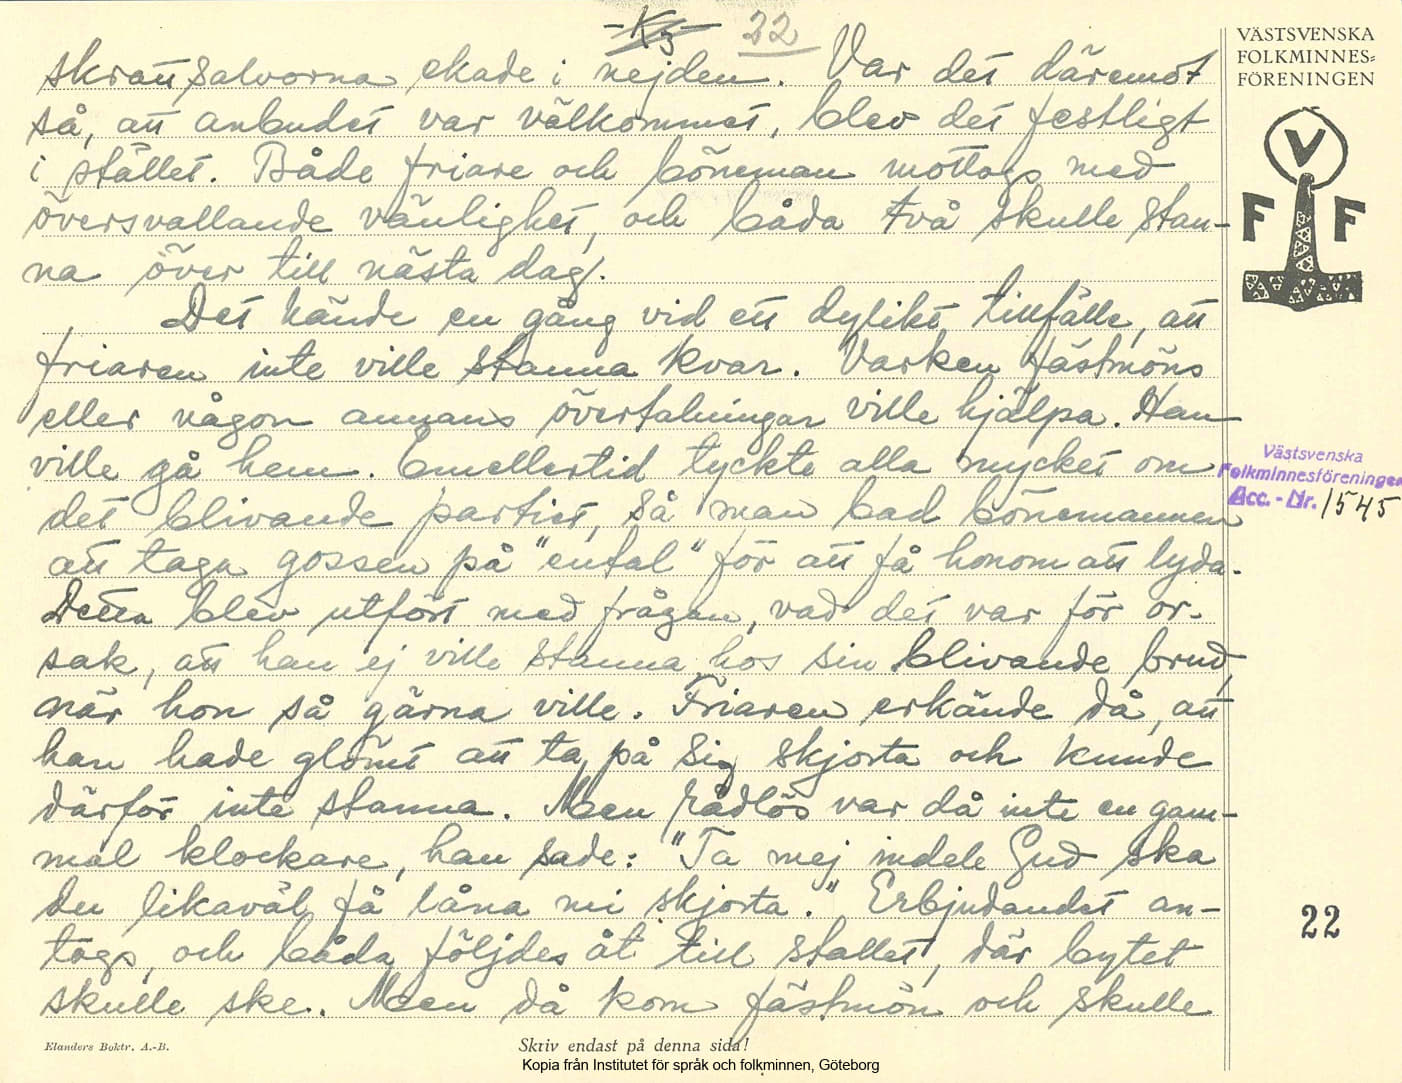 22
VÄSTSVENSKA
FOLKMINNES-
FÖRENINGEN
skrattsalvorna ekade i nejden. Var det däremot
så, att anbudet var välkommet, blev det festligt
i stället. Både friare och böneman mottogs med
översvallande vänlighet, och båda två skulle stan-
na över till nästa dag.
Det hände en gång vid ett dylikt tillfälle, att
friaren inte ville stanna kvar. Varken fästmöns
eller någon annans övertalningar ville hjälpa. Han
ville gå hem. Emellertid tyckte alla mycket om
det blivande partiet, så man bad bönemannen
att taga gossen på "ental" för att få honom att lyda.
Detta blev utfört med frågan, vad det var för or-
sak, att han ej ville stanna hos sin blivande brud,
när hon så gärna ville. Friaren erkände då, att
han hade glömt att ta på sig skjorta och kunde
därför inte stanna. Men rådlös var då inte en gam-
mal klockare, han sade: "Ta mej indele Gud ska
du likaväl få låna mi skjorta." Erbjudandet an-
togs, och båda följdes åt till stallet, där bytet
skulle ske. Men då kom fästmön och skulle
V
F F
Västsvenska
Folkminnesföreningen
Acc. - Nr. 1545
22
Elanders Boktr. A.-B.
Skriv endast på denna sida!
Kopia från Institutet för språk och folkminnen, Göteborg